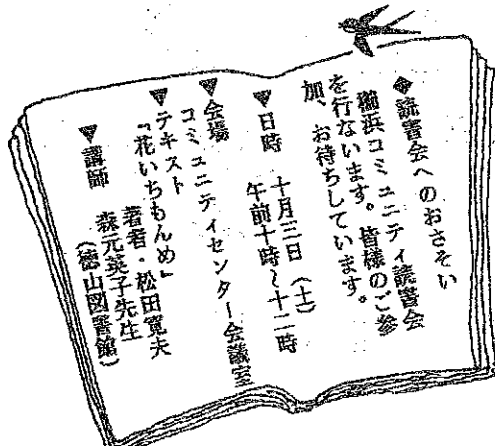 ◆読書会へのおさそい
櫛浜コミュニティ読書会
を行ないます。皆様のご参
加、お待ちしています。
▼日時 十月三日(土)
午前十時~十二時
▼会場
コミュニティセンター会議室
▼テキスト
『花いちもんめ』
著者・松田寛夫
▼講師 森元英子先生
(徳山図書館)